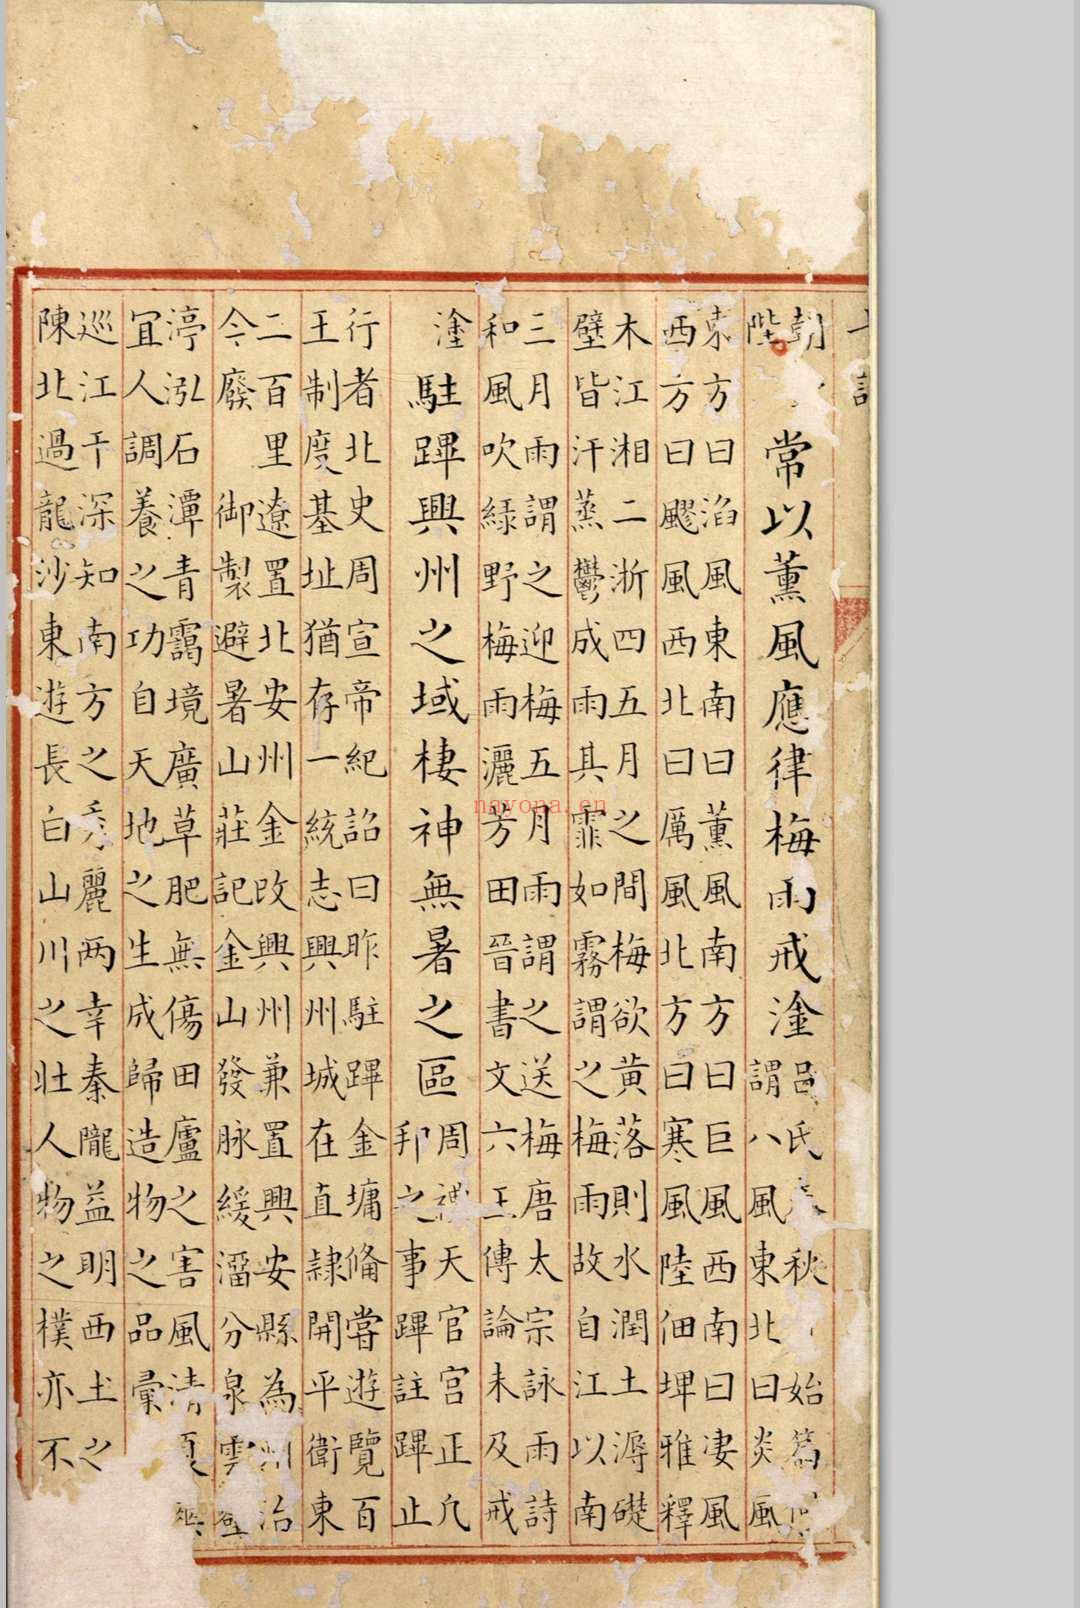 朝
陛
常以薰風應律梅雨戒塗
呂氏秋始篇
謂八風東北曰炎風
東方曰滔風東南曰薰風南方曰巨風西南曰凄風
西方曰飂風西北曰厲風北方曰寒風陸佃埤雅釋
木江湘二浙四五月之間梅欲黄落則水潤土溽礎
壁皆汗蒸鬱成雨其霏如霧謂之梅雨故自江以南
三月雨謂之迎梅五月雨謂之送梅唐太宗詠雨詩
和風吹緑野梅雨灑芳田晉書文六王傳論未及戒
塗
駐蹕興州之域棲神無暑之區
周禮天官宫正凡
邦之事蹕註蹕止
行者北史周宣帝紀詔曰昨駐蹕金墉備嘗遊覽百
王制度基址猶存一統志興州城在直隸開平衛東
二百里遼置北安州金改興州兼置興安縣為州治
今廢 御製避暑山莊記金山發脉緩溜分泉雲壑
渟泓石潭青靄境廣草肥無傷田廬之害風清夏爽
宜人調養之功自天地之生成歸造物之品彙
巡江干深知南方之秀麗两幸秦隴益明西土之
陳北過龍沙東遊長白山川之壯人物之樸亦不
nayona.cn